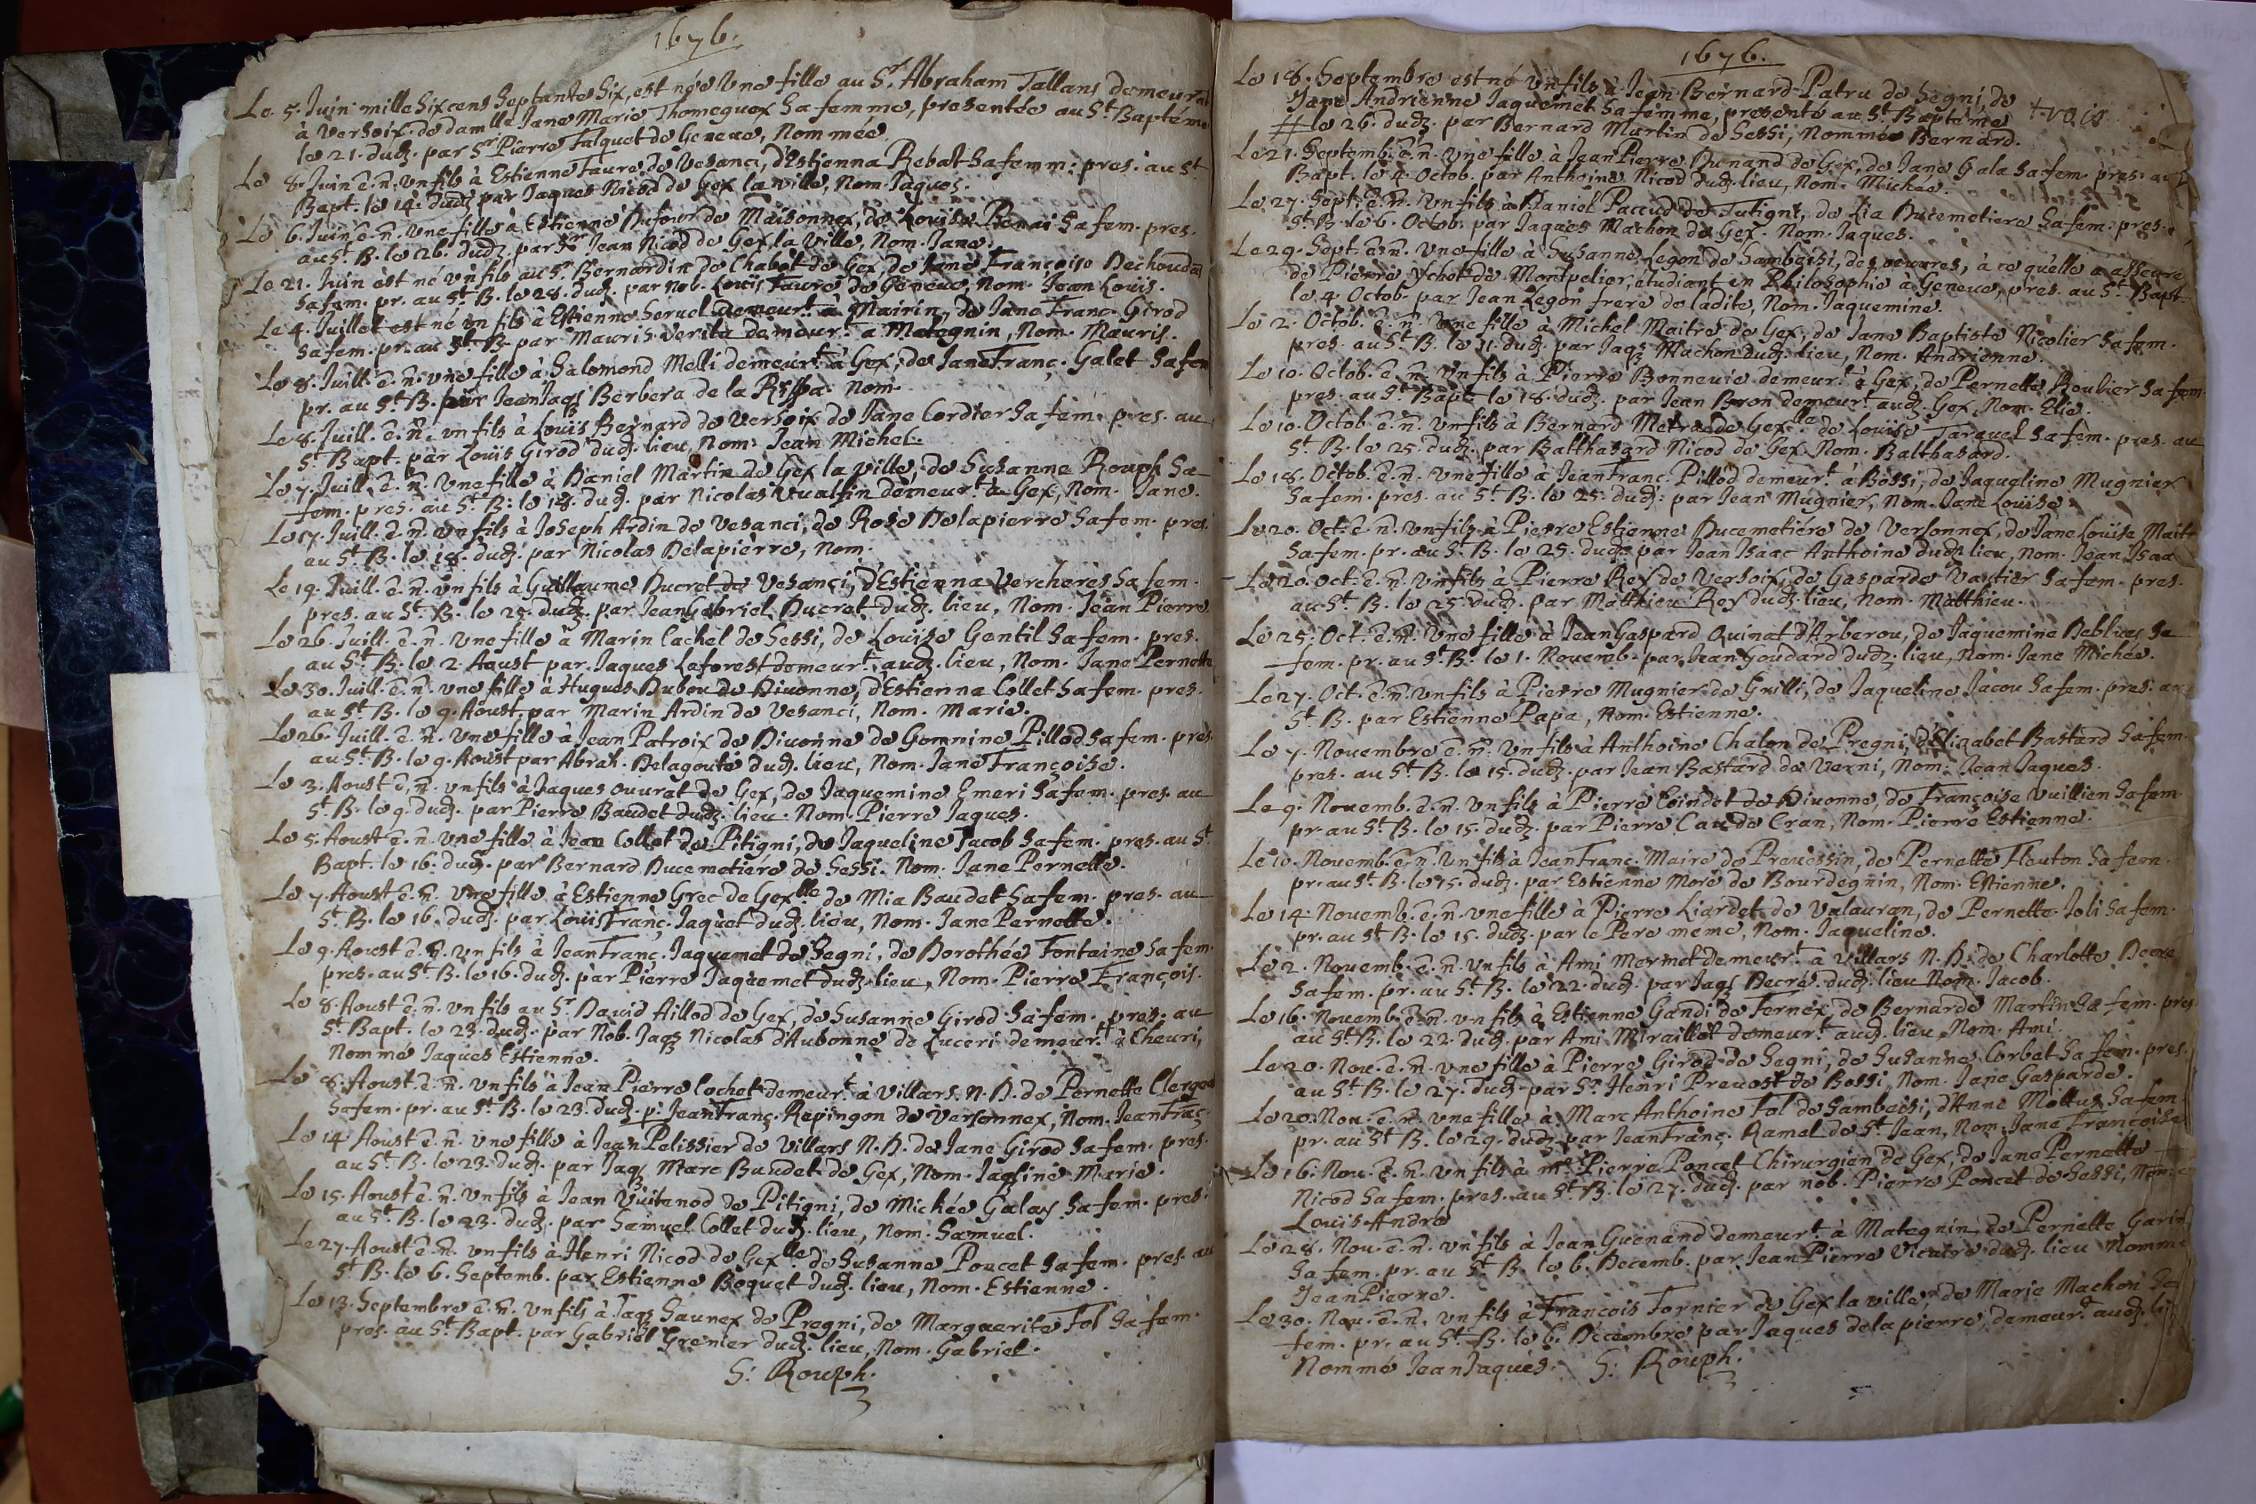 1676.
Le 5. Juin mille Six cens Septante Six, est née Une fille au Sr. Abraham Tallans demeurat
à Versoix de damlle Jane Marie Thomeguex Sa femme, presentée au St. Baptême
le 21. dudz. par Sr Pierre Falquet de Geneve, Nommée
Le 8. Juin ê. n. Un fils à Estienne Faure de Vesanci, d'Estienna Rebat Sa femm: pres. au St
Bapt. le 14. dudz par Jaques Nicod de Gex la ville, Nom. Jaques.
Le 6. Juin ê. n. Une fille à Estienne Dufour de Maisonnex, de Louise Benai Sa fem. pres.
au St. B. le 26. dudz. par Sr Jean Nicod de Gex la Ville, Nom. Jane.
Le 21. Juin est né Un fils au Sr. Bernardin de Chabot de Gex, de Jane Françoise Dechoudan
Sa fem. pr. au St. B. le 28. dudz. par Nob. Louis Faure de Geneve, Nom. Jean Louis.
Le 4. Juillet est né Un fils à Estienne Servel demeurt. à Mairin, de Jane Franc. Girod
Sa fem. pr. au St. B. par Mauris Verita demeurt. à Mategnin, Nom. Mauris.
Le 8. Juill. ê. n. Une fille à Salomond Melli demeurt. à Gex, de Jane Franç. Galet Sa fem
pr. au St. B. par Jean Jaqz Berbera de la Rippa. Nom.
Le 8. Juill. ê. n. Un fils à Louis Bernard de Versoix de Jane Cordier Sa fem. pres. au
St. Bapt. par Louis Girod dudz. lieu, Nom. Jean Michel.
Le 7. Juill. ê. n. Une fille à Daniel Martin de Gex la ville, de Susanne Rouph Sa
fem. pres. au St. B. le 18. dudz. par Nicolas Vualfin demeurt. à Gex, Nom. Jane.
Le 17. Juill. ê. n. Un fils à Joseph Ardin de Vesanci, de Rose Delapierre Sa fem. pres.
au St. B. le 18. dudz. par Nicolas Delapierre, Nom.
Le 19. Juill. ê. n. Un fils à Guillaume Ducret de Vesanci, d'Estienna Vercheres Sa fem.
pres. au St. B. le 25. dudz. par Jean Gabriel Ducret dudz. lieu, Nom. Jean Pierre.
Le 26. Juill. ê. n. Une fille à Marin Cachet de Sessi, de Louise Gentil Sa fem. pres.
au St. B. le 2. Aoust par Jaques Laforest demeurt. audz. lieu, Nom. Jane Pernette
Le 30. Juill. ê. n. Une fille à Hugues Dubou de Divonne, d'Estienna Collet Sa fem. pres.
au St. B. le 9. Aoust, par Marin Ardin de Vesanci, Nom. Marie.
Le 26. Juill. ê. n. Une fille à Jean Patroix de Divonne de Gonnine Pillod Sa fem. pres.
au St. B. le 9. Aoust par Abrah. Delagoute dudz. lieu, Nom. Jane Françoise.
Le 3. Aoust ê. n. Un fils à Jaques Ouurat de Gex, de Jaquemine Emeri Sa fem. pres. au
St. B. le 9. dudz. par Pierre Baudet dudz. lieu. Nom. Pierre Jaques.
Le 5. Aoust ê. n. Une fille à Jean Collet de Pitigni, de Jaqueline Jacob Sa fem. pres. au St.
Bapt. le 16. dudz. par Bernard Ducemetiére de Sessi. Nom. Jane Pernette.
Le 7. Aoust ê. n. Une fille à Estienne Grec de Gex lle de Mia Baudet Sa fem. pres. au
St. B. le 16. dudz. par Louis Franç. Jaquet dudz. lieu, Nom. Jane Pernette.
Le 9. Aoust ê. n. Un fils à Jean Franç. Jaquemet de Segni, de Dorothée Fontaine Sa fem.
pres. au St. B. le 16. dudz. par Pierre Jaquemet dudz. lieu, Nom. Pierre François.
Le 8. Aoust ê. n. Un fils au Sr. David Aillod de Gex, de Susanne Girod Sa fem. pres. au
St. Bapt. le 23. dudz. par Nob. Jaqz Nicolas d'Aubonne de Luceri demeurt. à Cheuri,
Nommé Jaques Estienne.
Le 8. Aoust. ê. n. Un fils à Jean Pierre Cochet demeurt. à Villars N. D. de Pernette Clergod
Sa fem. pr. au St. B. le 23. dudz. pr. Jean Franç. Rapingon de Versonnex, Nom. Jean Franç.
Le 14. Aoust ê. n. Une fille à Jean Pelissier de Villars N. D. de Jane Girod Sa fem. pres.
au St. B. le 23. dudz. par Jaqz Marc Baudet de Gex, Nom. Jaqline Marie.
Le 15. Aoust ê. n. Un fils à Jean Vuitenod de Pitigni, de Michée Galay Sa fem. pres.
au St. B. le 23. dudz. par Samuel Collet dudz. lieu, Nom. Samuel.
Le 27. Aoust ê. n. Un fils à Henri Nicod de Gex lle de Susanne Poncet Sa fem. pres. au
St. B. le 6. Septemb. par Estienne Boquet dudz. lieu, Nom. Estienne.
Le 13. Septembre ê. n. Un fils à Jaqz Saunex de Pregni, de Marguerite Fol Sa fem.
pres. au St. Bapt. par Gabriel Grenier dudz. lieu, Nom. Gabriel.
S: Rouph.
1676.
Le 18. Septembre est né Un fils à Jean Bernard Patru de Segni, de
Jane Andrienne Jaquemet Sa femme, presenté au St. Baptême trois
le 26. dudz. par Bernard Martin de Sessi, Nommé Bernard.
Le 21. Septemb. ê. n. Une fille à Jean Pierre Dunand de Gex, de Jane Gala Sa fem. pres. au
Bapt. le 4. Octob. par Anthoine Nicod dudz. lieu, Nom. Michée.
Le 27. Sept. ê. n. Un fils à Daniel Paccud de Tutigni, de Lia Ducemetiere Sa fem. pres.
St. B. le 6. Octob. par Jaques Machon de Gex. Nom. Jaques.
Le 29. Sept. ê. n. Une fille à Susanne Legon de Sambaisi, des oeuvres, à ce qu'elle a asseuré
de Pierre Ychot de Montpelier, étudiant en Philosophie à Geneve, pres. au St. Bapt.
le 4. Octob. par Jean Legon frere de ladite, Nom. Jaquemine.
Le 2. Octob. ê. n. Une fille à Michel Maitre de Gex, de Jane Baptiste Nicolier Sa fem.
pres. au St. B. le 11. dudz. par Jaqz Machon dudz. lieu, Nom. Andrienne.
Le 10. Octob. ê. n. Un fils à Pierre Bonnevie demeurt. à Gex, de Pernette Roulier Sa fem.
pres. au St. Bapt. le 18. dudz. par Jean Bron demeurt. audz. Gex, Nom. Elie.
Le 10. Octob. ê. n. Un fils à Bernard Metral de Gex lle de Louise Tarquel Sa fem. pres. au
St. B. le 25. dudz. par Balthasard Nicod de Gex. Nom. Balthasard.
Le 18. Octob. ê. n. Une fille à Jean Franc. Pillod demeurt. à Bossi, de Jaqueline Mugnier
Sa fem. pres. au St. B. le 25. dudz. par Jean Mugnier, Nom. Jane Louise.
Le 20. Oct. ê. n. Un fils à Pierre Estienne Ducemetiére de Versonnex, de Jane Louise Mait
Sa fem. pr. au St. B. le 25. dudz. par Jean Isaac Anthoine dudz. lieu, Nom. Jean Isaa
Le 20. Oct. ê. n. Un fils à Pierre Rey de Versoix, de Gasparde Vautier Sa fem. pres.
au St. B. le 25. dudz. par Matthieu Rey dudz. lieu, Nom. Matthieu.
Le 25. Oct. ê. n. Une fille à Jean Gaspard Quinat d'Arberou, de Jaquemine Deblües Sa
fem. pr. au St. B. le 1. Novemb. par Jean Goudard dudz. lieu, Nom. Jane Michée.
Le 27. Oct. ê. n. Un fils à Pierre Mugnier de Grilli, de Jaqueline Jacou Sa fem. pres. au
St. B. par Estienne Papa, Nom. Estienne.
Le 7. Novembre ê. n. Un fils à Anthoine Chalon de Pregni, d'Elizabet Bastard Sa fem.
pres. au St. B. le 15. dudz. par Jean Bastard de Verni, Nom. Jean Jaques.
Le 9. Novemb. ê. n. Un fils à Pierre Coindet de Divonne, de Françoise Vuillien Sa fem.
pr. au St. B. le 15. dudz. par Pierre Cau de Cran, Nom. Pierre Estienne.
Le 10. Novemb. ê. n. Un fils à Jean Franc. Maire de Prevessin, de Pernette Flouton Sa fem.
pr. au St. B. le 15. dudz. par Estienne Moré de Bourdegnin, Nom. Estienne.
Le 14. Novemb. ê. n. Une fille à Pierre Liardet de Valauran, de Pernette Joli Sa fem.
pr. au St. B. le 15. dudz. par le Pere meme, Nom. Jaqueline.
Le 2. Novemb. ê. n. Un fils à Ami Mermet demeurt. à Villars N. D. de Charlotte Decré
Sa fem. pr. au St. B. le 22. dudz. par Jaqz Decré dudz. lieu Nom. Jacob.
Le 16. Novemb. ê. n. Un fils à Estienne Gandi de Fernex, de Bernarde Martin Sa fem. pres
au St. B. le 22. dudz. par Ami Miraillet demeurt. audz. lieu Nom. Ami.
Le 20. Nov. ê. n. Une fille à Pierre Girod de Segni, de Susanne Corbet Sa fem. pres.
au St. B. le 27. dudz. par Sr. Henri Prevost de Bossi, Nom. Jane Gasparde.
Le 20. Nov. ê. n. Une fille à Marc Anthoine Fol de Sambaisi, d'Anne Mottuz Sa fem.
pr. au St. B. le 29. dudz. par Jean Franç. Ramel de St. Jean, Nom. Jane Françoise
Le 16. Nov. ê. n. Un fils à mr. Pierre Poncet Chirurgien de Gex, de Jane Pernette
Nicod Sa fem. pres. au St. B. le 27. dudz. par nob. Pierre Poncet de Sessi, Nom.
Louis André
Le 28. Nov. ê. n. Un fils à Jean Guenand demeurt. à Mategnin, de Pernette Garin
Sa fem. pr. au St. B. le 6. Decemb. par Jean Pierre Vicaire dudz. lieu Nommé
Jean Pierre.
Le 30. Nov. ê. n. Un fils à François Fornier de Gex la ville, de Marie Machon Sa
fem. pr. au St. B. le 6. Décembre par Jaques delapierre demeurt. audz. li
Nommé Jean Jaques. S: Rouph.